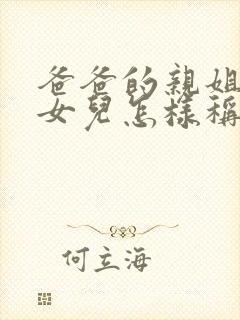 爸爸的親姐
女兒怎樣稱
何立海